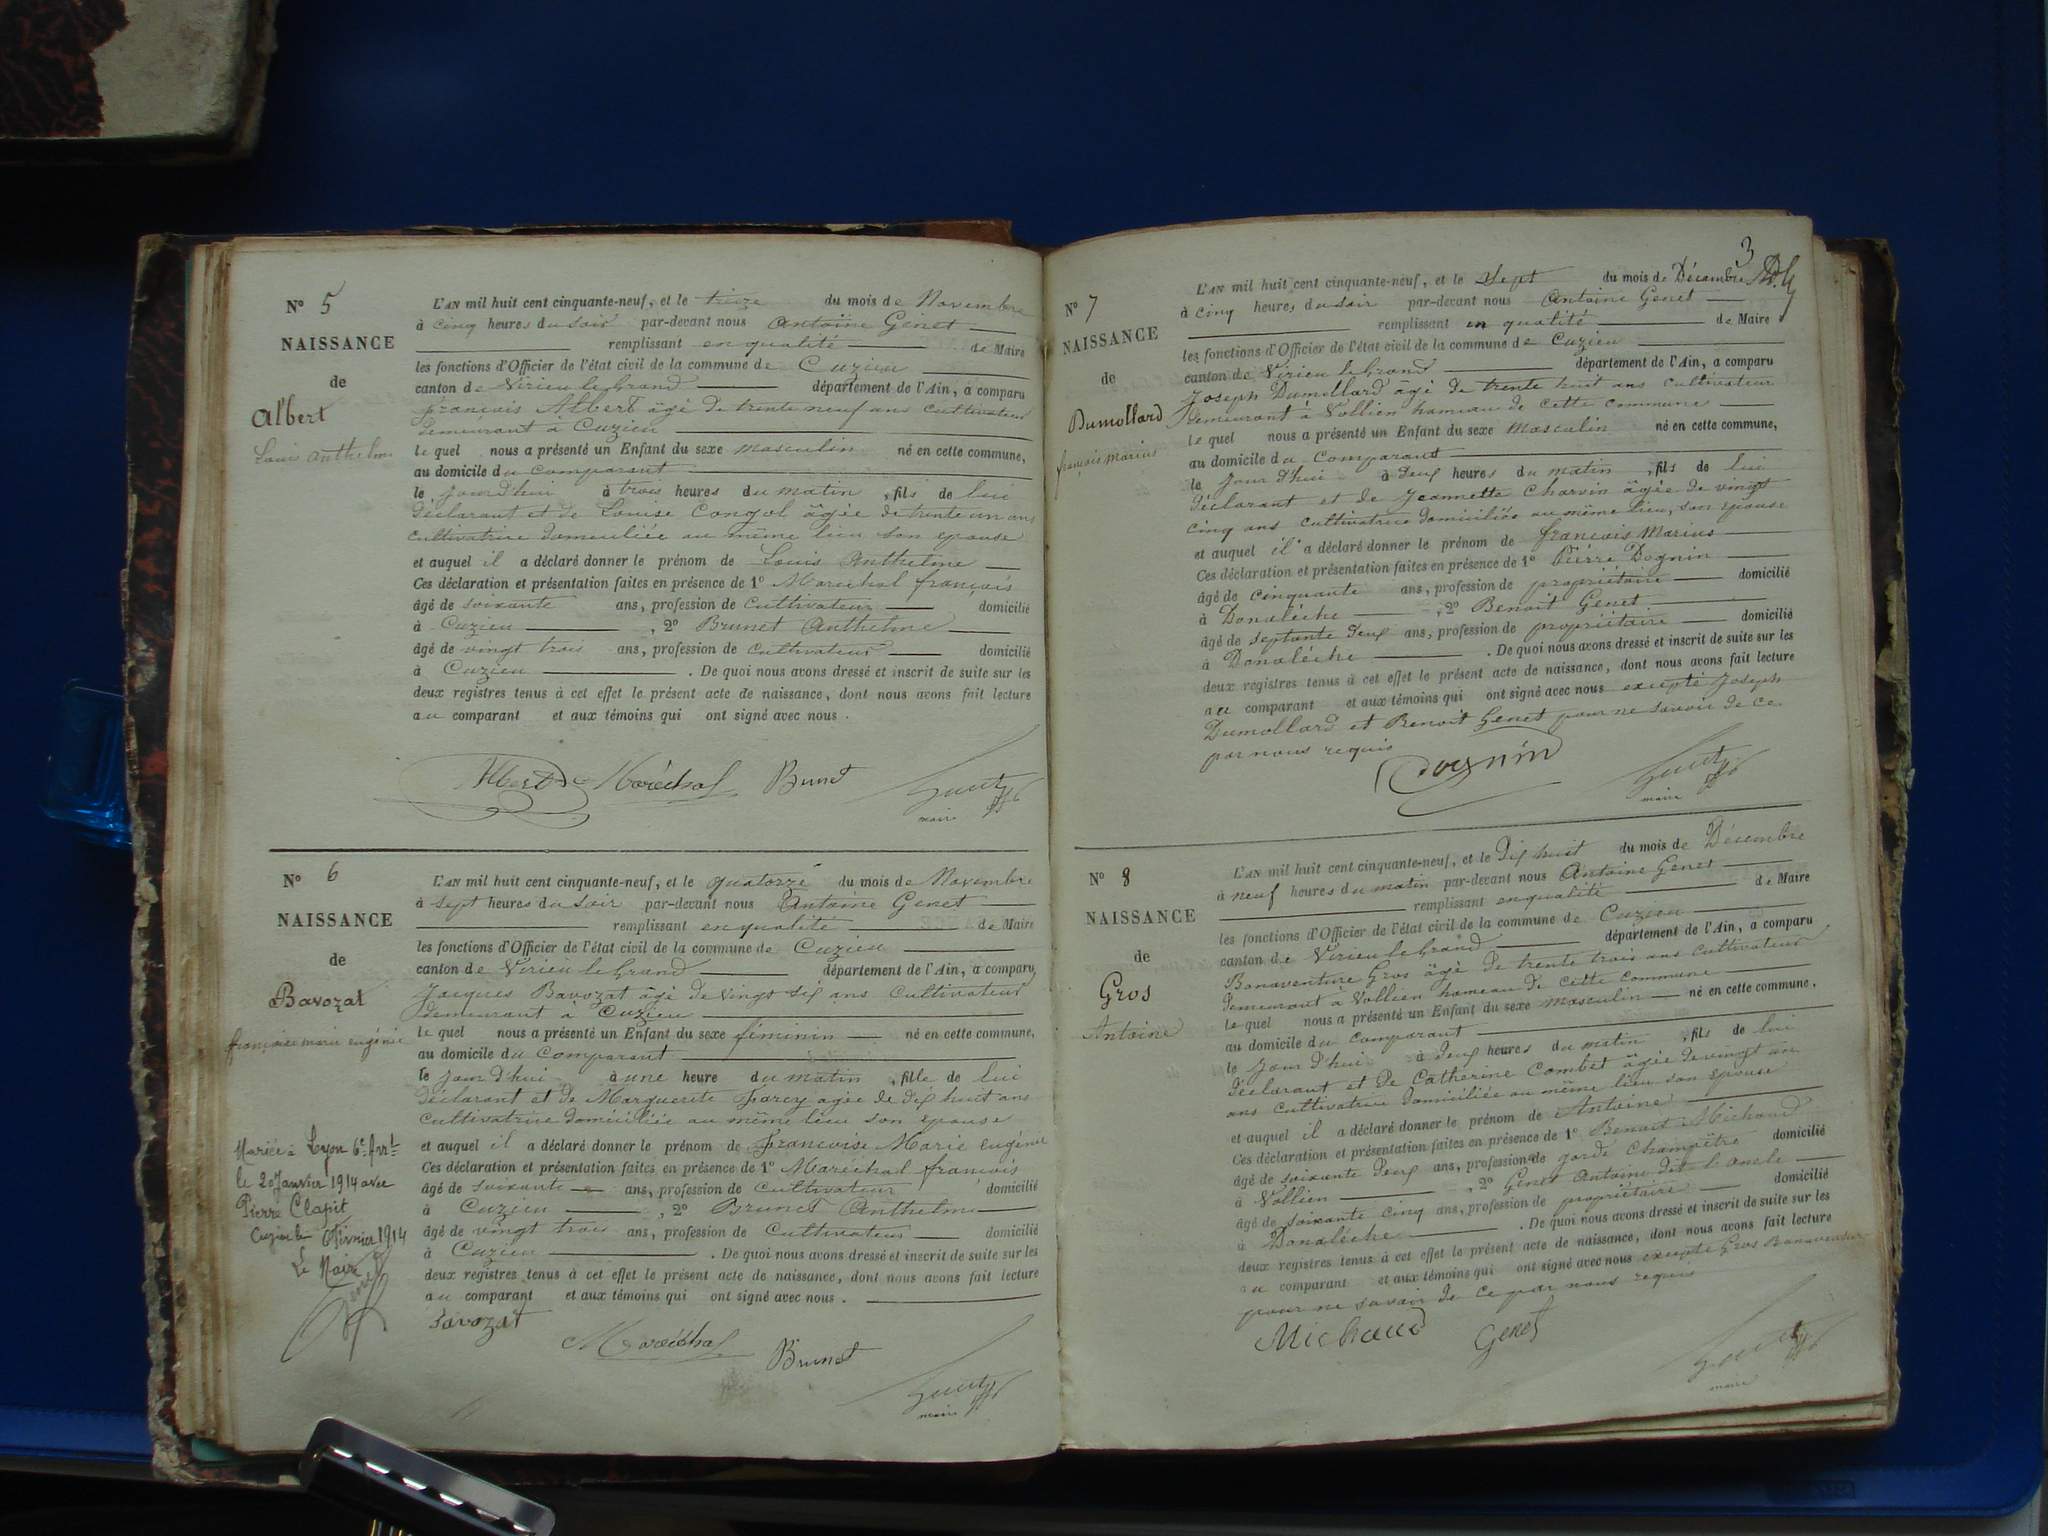 N° 5
NAISSANCE
de
Albert
Louis Anthelme
L'AN mil huit cent cinquante-neuf, et le treize du mois de Novembre
à cinq heures du soir par-devant nous Antoine Genet
remplissant en qualité de Maire
les fonctions d'Officier de l'état civil de la commune de Cuzieu
canton de Virieu le Grand département de l'Ain, a comparu
françois Albert âgé de trente neuf ans cultivateur
demeurant à Cuzieu
le quel nous a présenté un Enfant du sexe masculin né en cette commune,
au domicile du Comparant
le jourd'hui à trois heures du matin, fils de lui
déclarant et de Louise Congol âgée de trente un ans
cultivatrice domiciliée au même lieu son épouse
et auquel il a déclaré donner le prénom de Louis Anthelme
Ces déclaration et présentation faites en présence de 1° Maréchal françois
âgé de soixante ans, profession de cultivateur domicilié
à Cuzieu, 2° Brunet Anthelme
âgé de vingt trois ans, profession de cultivateur domicilié
à Cuzieu. De quoi nous avons dressé et inscrit de suite sur les
deux registres tenus à cet effet le présent acte de naissance, dont nous avons fait lecture
au comparant et aux témoins qui ont signé avec nous.
Albert Maréchal Brunet Genet
maire
N° 6
NAISSANCE
de
Bavozat
françoise marie eugénie
Mariée à Lyon 6e Arrt
le 20 Janvier 1914 avec
Pierre Clapit
Cuzieu le 6 février 1914
Le Maire
Genet
L'AN mil huit cent cinquante-neuf, et le quatorze du mois de Novembre
à sept heures du soir par-devant nous Antoine Genet
remplissant en qualité de Maire
les fonctions d'Officier de l'état civil de la commune de Cuzieu
canton de Virieu le Grand département de l'Ain, a comparu
Jacques Bavozat âgé de vingt six ans cultivateur
demeurant à Cuzieu
le quel nous a présenté un Enfant du sexe féminin né en cette commune,
au domicile du Comparant
le jour d'hui à une heure du matin, fille de lui
déclarant et de Marguerite Farcy agée de dix huit ans
cultivatrice domiciliée au même lieu son épouse
et auquel il a déclaré donner le prénom de Francoise Marie eugénie
Ces déclaration et présentation faites en présence de 1° Maréchal françois
âgé de soixante ans, profession de cultivateur domicilié
à Cuzieu, 2° Brunet Anthelme
âgé de vingt trois ans, profession de Cultivateur domicilié
à Cuzieu. De quoi nous avons dressé et inscrit de suite sur les
deux registres tenus à cet effet le présent acte de naissance, dont nous avons fait lecture
au comparant et aux témoins qui ont signé avec nous.
Bavozat
Maréchal Brunet Genet
maire
3
N° 7
NAISSANCE
de
Dumollard
françois marius
L'AN mil huit cent cinquante-neuf, et le Sept du mois de Décembre
à cinq heures du soir par-devant nous Antoine Genet
remplissant en qualité de Maire
les fonctions d'Officier de l'état civil de la commune de Cuzieu
canton de Virieu le Grand département de l'Ain, a comparu
Joseph Dumollard âgé de trente huit ans cultivateur
demeurant à Vollien hameau de cette commune
le quel nous a présenté un Enfant du sexe masculin né en cette commune,
au domicile du comparant
le jour d'hui à deux heures du matin, fils de lui
déclarant et de Jeannette Charvin âgée de vingt
cinq ans cultivatrice domiciliée au même lieu, son épouse
et auquel il a déclaré donner le prénom de françois Marius
Ces déclaration et présentation faites en présence de 1° Pierre Dognin
âgé de cinquante ans, profession de propriétaire domicilié
à Donalèche, 2° Benoit Genet
âgé de septante deux ans, profession de propriétaire domicilié
à Donalèche. De quoi nous avons dressé et inscrit de suite sur les
deux registres tenus à cet effet le présent acte de naissance, dont nous avons fait lecture
au comparant et aux témoins qui ont signé avec nous excepté Joseph
Dumollard et Benoit Genet pour ne savoir de ce
par nous requis
Dognin Genet
maire
N° 8
NAISSANCE
de
Gros
Antoine
L'AN mil huit cent cinquante-neuf, et le Dix huit du mois de Décembre
à neuf heures du matin par-devant nous Antoine Genet
remplissant en qualité de Maire
les fonctions d'Officier de l'état civil de la commune de Cuzieu
canton de Virieu le Grand département de l'Ain, a comparu
Bonaventure Gros âgé de trente trois ans cultivateur
demeurant à Vollien hameau de cette commune
le quel nous a présenté un Enfant du sexe masculin né en cette commune,
au domicile du comparant
le jour d'hui à deux heures du matin, fils de lui
déclarant et de Catherine Combet âgée de vingt un
ans cultivatrice domiciliée au même lieu son épouse
et auquel il a déclaré donner le prénom de Antoine
Ces déclaration et présentation faites en présence de 1° Benoit Michaud
âgé de soixante deux ans, profession de garde champêtre domicilié
à Vollien, 2° Genet Antoine dit l'oncle
âgé de soixante cinq ans, profession de propriétaire domicilié
à Donalèche. De quoi nous avons dressé et inscrit de suite sur les
deux registres tenus à cet effet le présent acte de naissance, dont nous avons fait lecture
au comparant et aux témoins qui ont signé avec nous excepté Gros Bonaventure
pour ne savoir de ce par nous requis
Michaud Genet Genet
maire